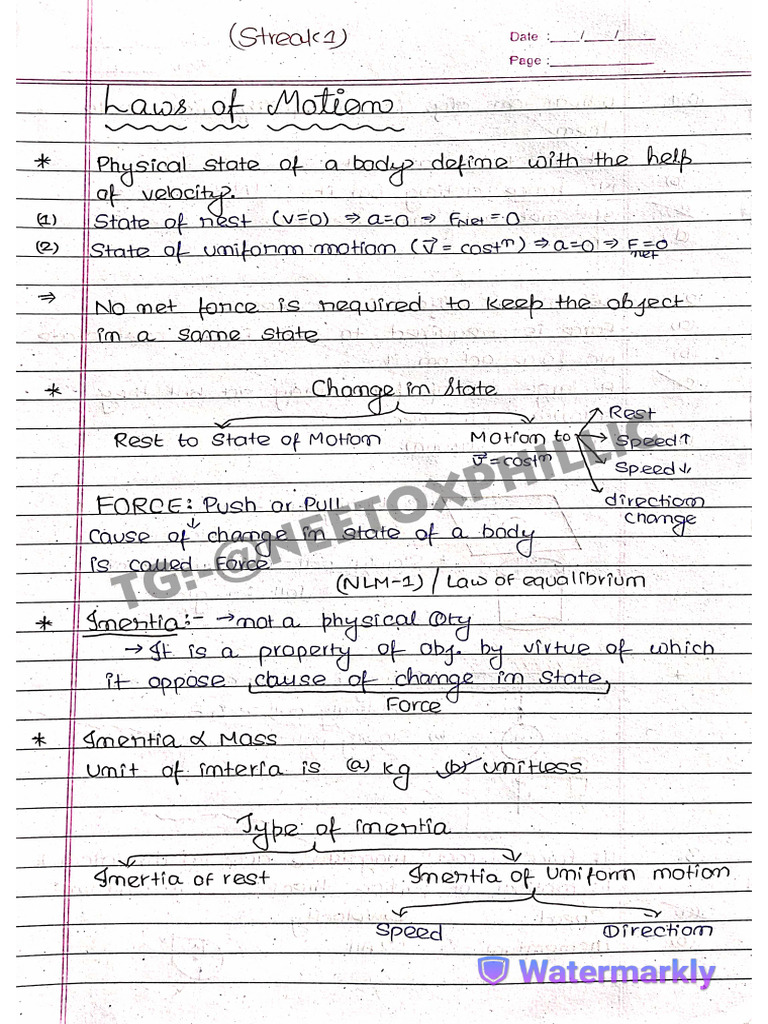 (Streak1)
Date :___/___/___
Page :___________
Laws of Motion
* Physical state of a body define with the help
of velocity.
(1) State of rest (v=0) ⇒ a=0 ⇒ FNet=0
(2) State of uniform motion (v⃗ = costⁿ) ⇒ a=0 ⇒ Fnet=0
⇒ No net force is required to keep the object
in a same state
* Change in State
Rest to State of Motion
Motion to
v⃗=costⁿ
→ Rest
→ Speed↑
Speed↓
direction
change
FORCE: Push or Pull
cause of change in state of a body
is called Force
TG:-@NEETOXPHILLIC
(NLM-1) / Law of equalibrium
* Inertia:- → not a physical Qty
→ It is a property of obj. by virtue of which
it oppose cause of change in state,
Force
* Inertia α Mass
Unit of interia is (a) kg (b) unitless
Type of inertia
Inertia of rest
Inertia of Uniform motion
Speed
Direction
Watermarkly